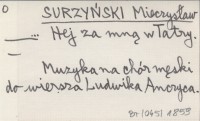 O
SURZYŃSKI Mieczysław
__... Hej za mną w Tatry.
Muzyka na chór męski
do wiersza Ludwika Anczyca.
Br 1045 | 1859